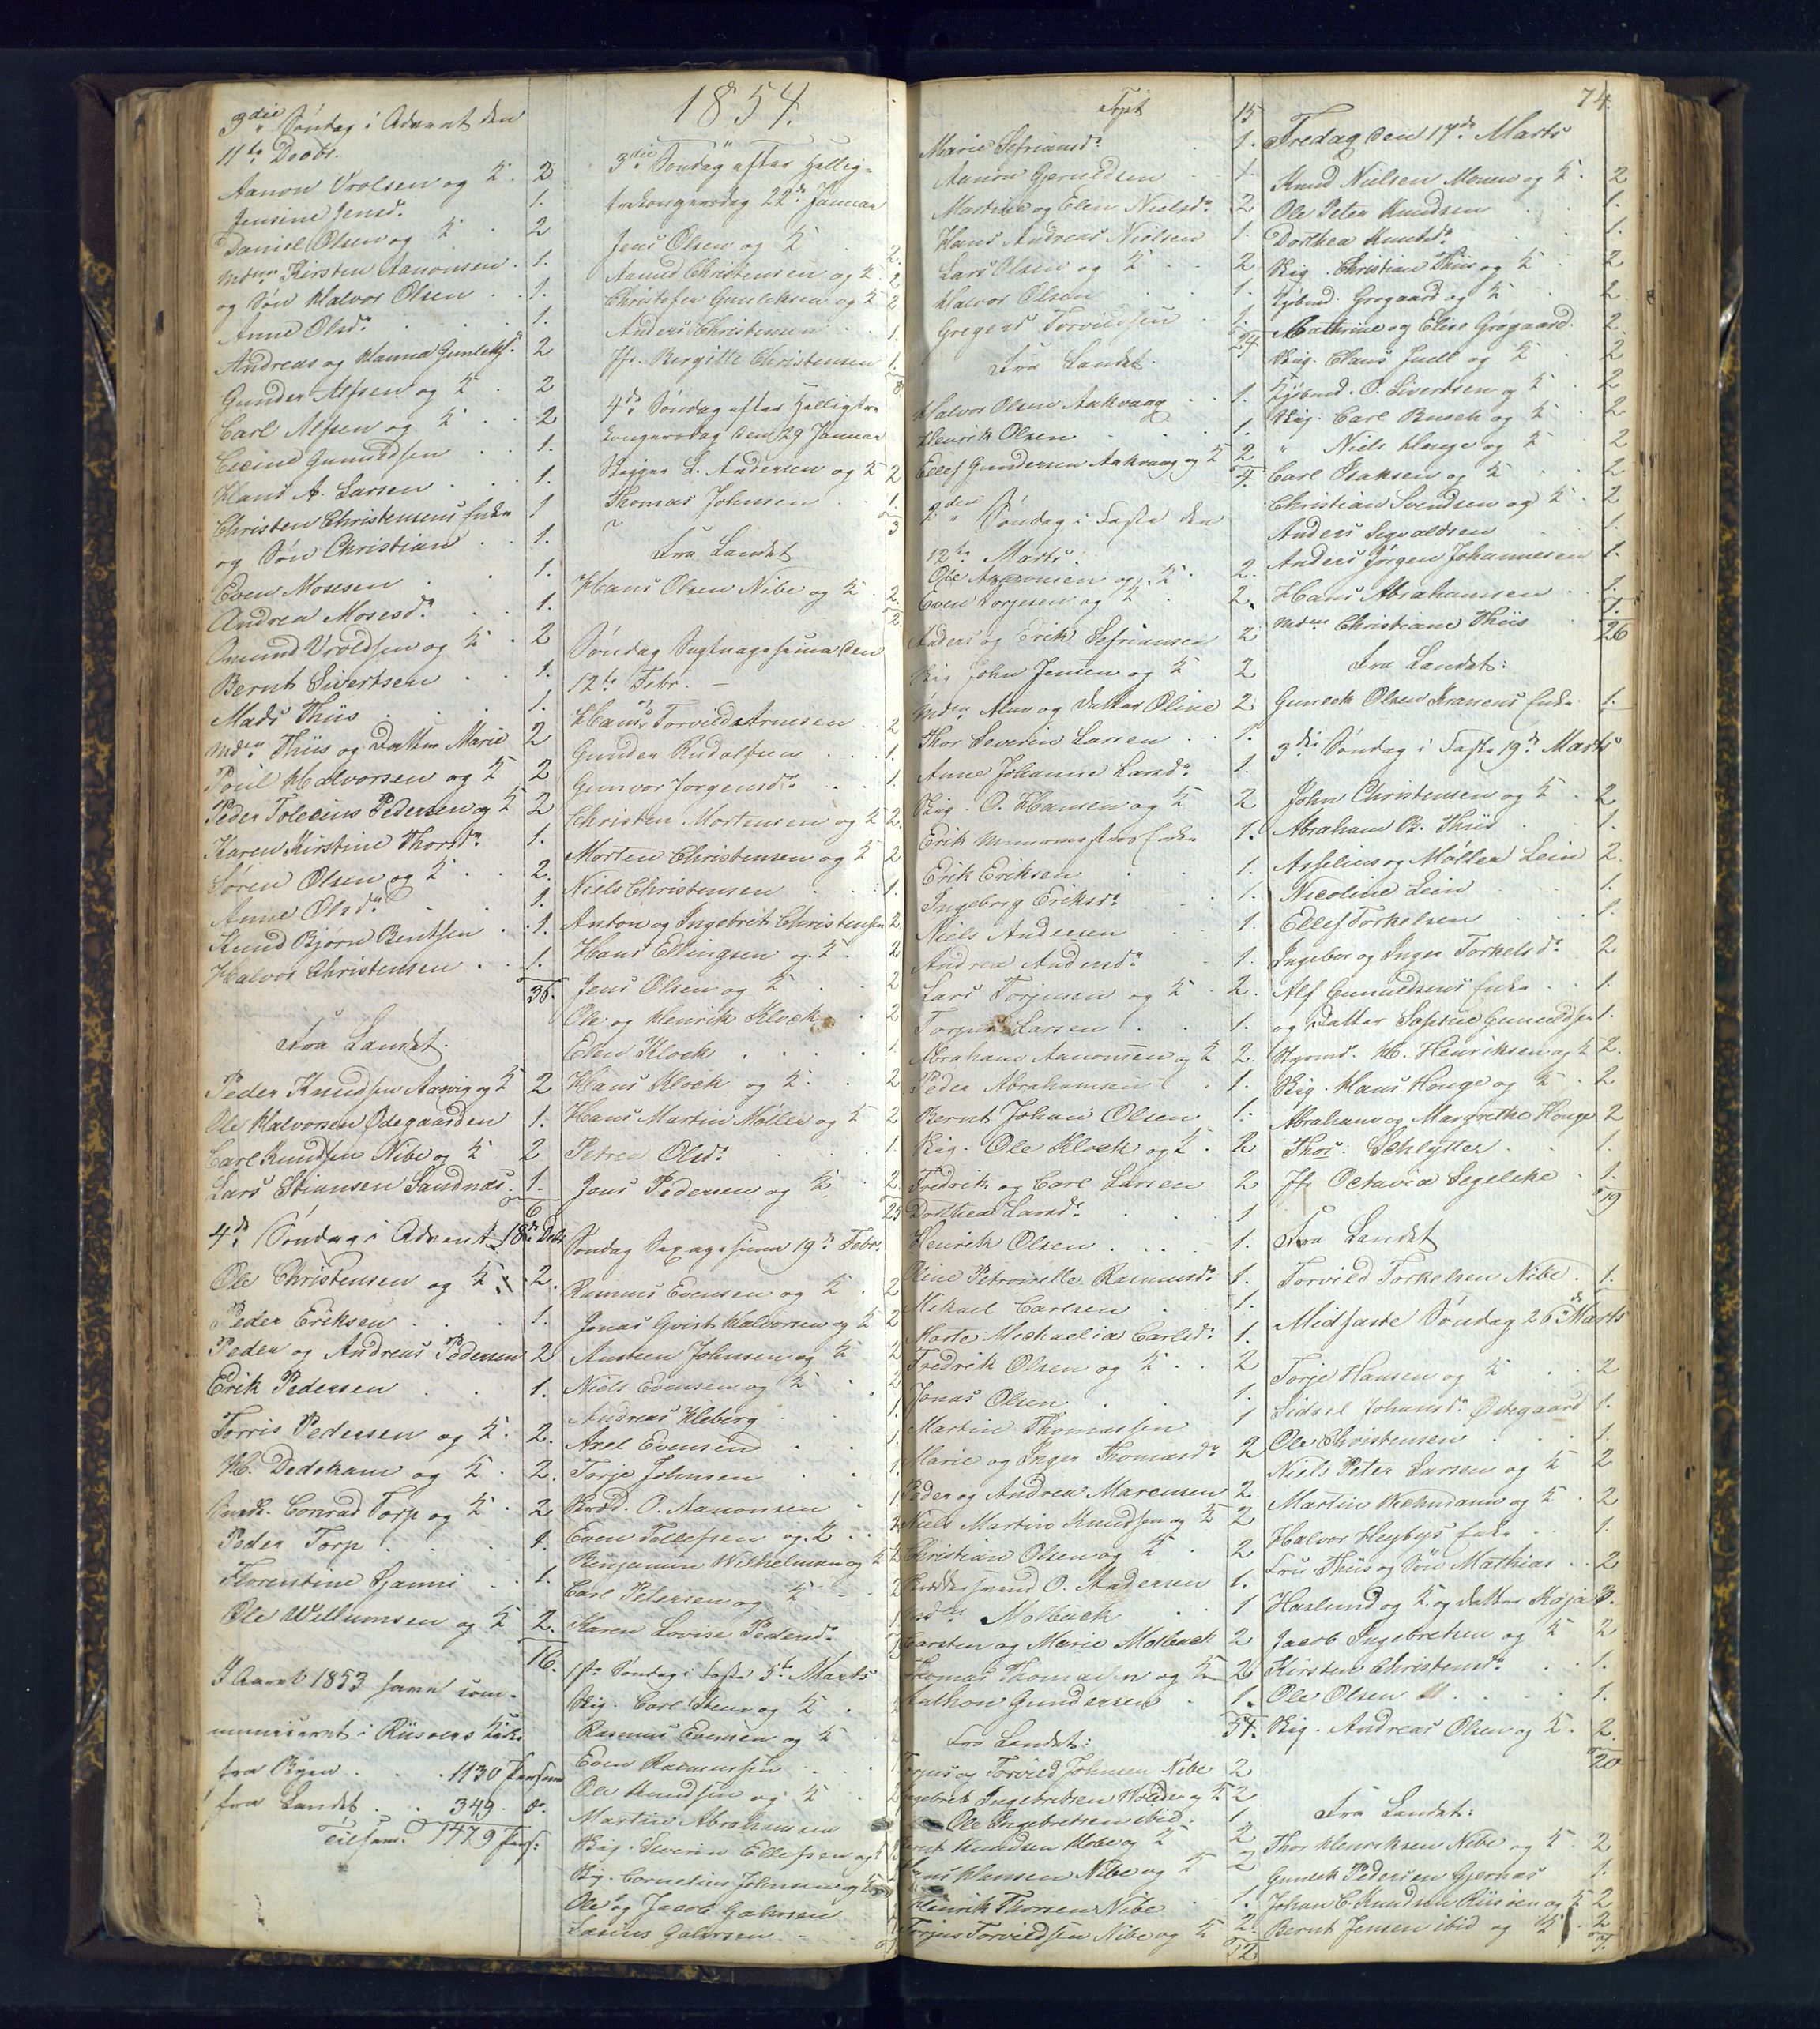 3die Søndag i Advent den
11te Decbr.
Aanon Vrolsen og K. 2
Jensine Jensd. 1.
Daniel Olsen og K 2
Mdme Kirsten Aanonsen. 1.
og Søn Halvor Olsen 1.
Anne Olsd. 1.
Andreas og Hanna Gunleks. 2
Gunder Alfsen og K 2
Carl Alfsen og K 2
Gunuldsen 1.
Hans A. Larsen 1.
Christen Christensens Enke 1
og Søn Christian 1.
Even Mosesen 1.
Andrea Mosesd. 1.
Amund Vroldsen og K 2
Bernt Sivertsen 1.
Mads Thiis 1.
Mdme Thiis og Datter Marie 2
Poul Halvorsen og K 2
Peder Tolecius Pedersen og K 2
Karen Kirstine Thorsd. 1.
Søren Olsen og K 2.
Anne Olsd. 1.
Knud Bjørn Bentsen 1.
Halvor Christensen 1.
36.
Fra Landet.
Peder Knudsen Aasvig og K 2
Ole Halvorsen Ødegaarden 1.
Carl Knudsen Nibe og K 2
Lars Stiansen Sandnæs 1.
6
4de Søndag i Advent 18de Decbr
Ole Christensen og K 2.
Peder Eriksen 1.
Peder og Andreas Pedersen 2
Erik Pedersen 1.
Torris Pedersen og K. 2.
H. Dedekam og K 2.
Conrad Torp og K 2
Peder Torp 1.
Florentine 1.
Ole Willumsen og K 2.
16.
I Aaret 1853 have com-
municeret i Riisøers Kirke
fra Byen 1130 Personer
fra Landet 349 do.
Tilsam. 1479 Pers:
1854.
3die Søndag efter Hellig-
trekongersdag 22de Januar
Jens Olsen og K 2.
Aanud Christensen og K 2
Christofer Gunleksen og K 2
Anders Christensen 1.
Jfr. Bergitte Christensen 1.
8.
4de Søndag efter Helligtre-
kongersdag den 29 Januar
Skipper L. Andersen og K 2
Thomas Johnsen 1.
3
Fra Landet
Hans Olsen Nibe og K 2.
2.
Søndag Septuagesima den
12te Febr.
Hans Torvild Arnesen 2
Gunder Rudolfsen 1.
Gunvor Jørgensd. 1
Christen Mortensen og K 2.
Morten Christensen og K 2
Niels Christensen 1.
Anton og Ingebret Christensen 2
Hans Ellingsen og K. 2
Jens Olsen og K 2
Ole og Henrik Klock 2
Elen Klock 1
Hans Klock og K. 2
Hans Martin Møller og K 2
Petrea Olsd. 1.
Jens Pedersen og K 2.
25
Søndag Sexagesima 19de Febr.
Rasmus Evensen og K 2
Jonas Qvist Halvorsen og K 2
Austeen Johnsen og K 2
Niels Evensen og K 2
Andreas Kleberg 1.
Axel Evensen 1.
Torje Johnsen 1.
O. Aanonsen 1.
Even Tollefsen og K
Benjamin Wilhelmsen og K 2
Carl Petersen og K 2
Karen Lovise Pedersd. 1
1ste Søndag i Faste 5te Marts
Skip. Carl Steen og K
Rasmus Evensen og K
Even Rasmussen
Ole Knudsen og K
Martin Abrahamsen
Skip. Severin Ellefsen og K
Skip. Cornelius Johnsen og K
Ole og Jacob Gahrsen
Lasius Gahrsen
Tpt 15
Marie Sefriansd. 1.
Aanon Gjeruldsen 1.
Martine og Elen Nielsd. 2
Hans Andreas Nielsen 1.
Lars Olsen og K 2
Halvor Olsen 1.
Gregers Torvildsen 1.
24.
Fra Landet.
Halvor Olsen Aakvaag 1.
Henrik Olsen 1.
Ellef Gundersen Aakvaag og K 2
4.
2den Søndag i Faste den
12te Marts.
Ole Aanonsen og K. 2.
Even Torjesen og K 2.
Anders og Erik Sefriansen 2
Skip John Jensen og K 2
Mdme Aas og Datter Oline 2
Thor Severin Larsen 1.
Anne Johanne Larsd. 1.
Skip. O. Hansen og K 2
Erik Enke 1.
Erik Eriksen 1.
Ingeborg Eriksd. 1.
Niels Andersen 1.
Andrea Andersd. 1.
Lars Torjusen og K 2.
Torjus Larsen 1.
Abraham Aanonsen og K 2.
Peder Abrahamsen 1.
Bernt Johan Olsen 1.
Skip. Ole Klock og K. 2
Fredrik og Carl Larsen 2
Dorthea Larsd. 1
Henrik Olsen 1.
Oline Petronelle Rasmusd. 1.
Mikael Carlsen 1.
Marte Michaelia Carlsd. 1.
Fredrik Olsen og K 2
Jonas Olsen 1.
Martin Thomassen 1
Marie og Inger Thomasd. 2
Peder og Andrea Marensen 2.
Niels Martin Knudsen og K 2
Christian Olsen og K 2
O. Andersen 1.
Mdme Molback 1
Carsten og Marie Molback 2
Thomas Thomassen og K 2
Anthon Gundersen 1.
54.
Fra Landet:
Torjus og Torvild Johnsen Nibe 2
Ingebret Ingebretsen Wolden og K 2
Ole Ingebretsen ibid. 1.
Bernt Knudsen Hobe og K 2
Hans Hansen Nibe og K 2
Henrik Thorsen Nibe 1.
Torjus Torvildsen Nibe og K 2.
12
74.
Fredag den 17de Marts
Knud Nielsen Moeen og K. 2
Ole Peter Knudsen 1.
Dorthea Knudsd. 1.
Skip. Christian Thiis og K 2
Kjøbmd. Grøgaard og K 2.
Cathrine og Elise Grøgaard. 2.
Skip. Claus Juell og K 2
Kjøbmd. O. Sivertsen og K 2
Skip. Carl Busch og K 2
" Niels Hauge og K 2
Carl Isaksen og K 2
Christian Svendsen og K 2
Anders Sigvaldsen 1.
Anders Jørgen Johannesen 1.
Hans Abrahamsen 1.
Mdme Christiane Thiis 1.
26
Fra Landet:
Gunleck Olsen Kranens Enke 1.
3die Søndag i Faste 19de Marts
John Christensen og K 2
Abraham B. Thiis 1.
Asselius og Møller Lein 2.
Nicoline Lein 1.
Ellef Torkelsen 1.
Ingebor og Inger Torkelsd. 2
Alf Gunuldsens Enke 1.
og Datter Sophie Gunuldsen 1.
H. Henriksen og K 2.
Skip. Hans Houge og K 2
Abraham og Margrethe Houge 2
Thor. Schlytter 1.
Jfr Octavia Segelcke 1.
19
Fra Landet
Torvild Torkelsen Nibe. 1.
Midfaste Søndag 26de Marts
Torje Hansen og K 2
Sidsel Johansd. Ødegaard 1.
Ole Christensen 1.
Niels Peter Larsen og K 2
Martin Wichmann og K 2
Halvor Heybys Enke 1.
Fru Thiis og Søn Mathias 2
Haslund og K. og Datter Kaja 3.
Jacob Ingebretsen og K 2
Kirsten Christensd. 1.
Ole Olsen 1.
Skip. Andreas Olsen og K. 2.
20
Fra Landet:
Thor Henriksen Nibe og K 2
Gunlek Pedersen Gjernæs 1.
Johan C. Knudsen Riisøen og K 2
Bernt Jensen ibid og K 2
7.